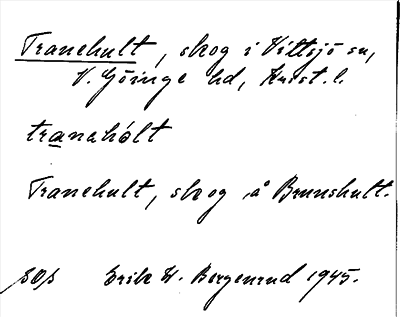 Tranehult, skog i Vittsjö sn,
V. Göinge hd, Krist. l.
tranehólt
Tranehult, skog å Brunshult.
SOS Erik W. Bergenrud 1945.